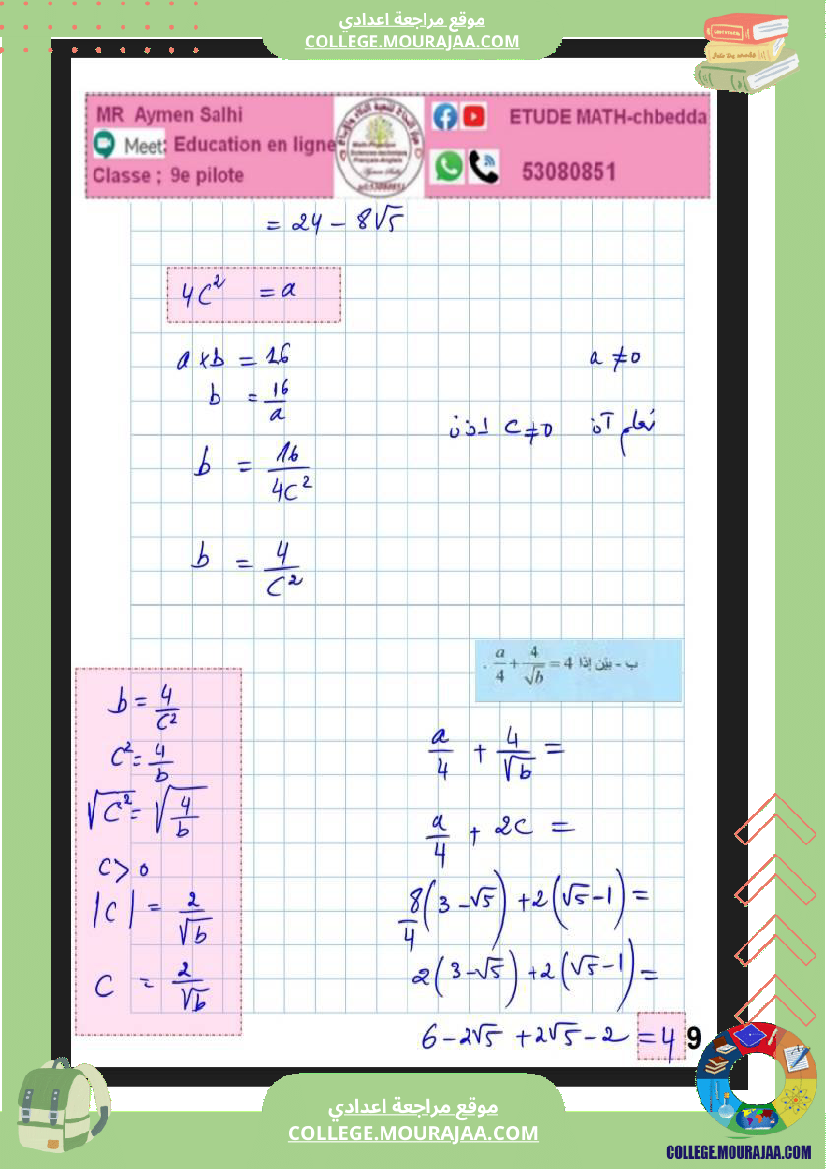 موقع مراجعة اعدادي
COLLEGE.MOURAJAA.COM
MR Aymen Salhi
Meet: Education en ligne
Classe ; 9e pilote
ETUDE MATH-chbedda
53080851
= 24 - 8√5
4C² = a
a × b = 16
a ≠ 0
b = 16/a
نعلم آن C ≠ 0 اذن
b = 16/4C²
b = 4/C²
ب - بيّن إذا a/4 + 4/√b = 4 .
b = 4/C²
C² = 4/b
√C² = √(4/b)
C > 0
|C| = 2/√b
C = 2/√b
a/4 + 4/√b =
a/4 + 2C =
8/4 (3 - √5) + 2(√5 - 1) =
2(3 - √5) + 2(√5 - 1) =
6 - 2√5 + 2√5 - 2 = 4
9
موقع مراجعة اعدادي
COLLEGE.MOURAJAA.COM
COLLEGE.MOURAJAA.COM